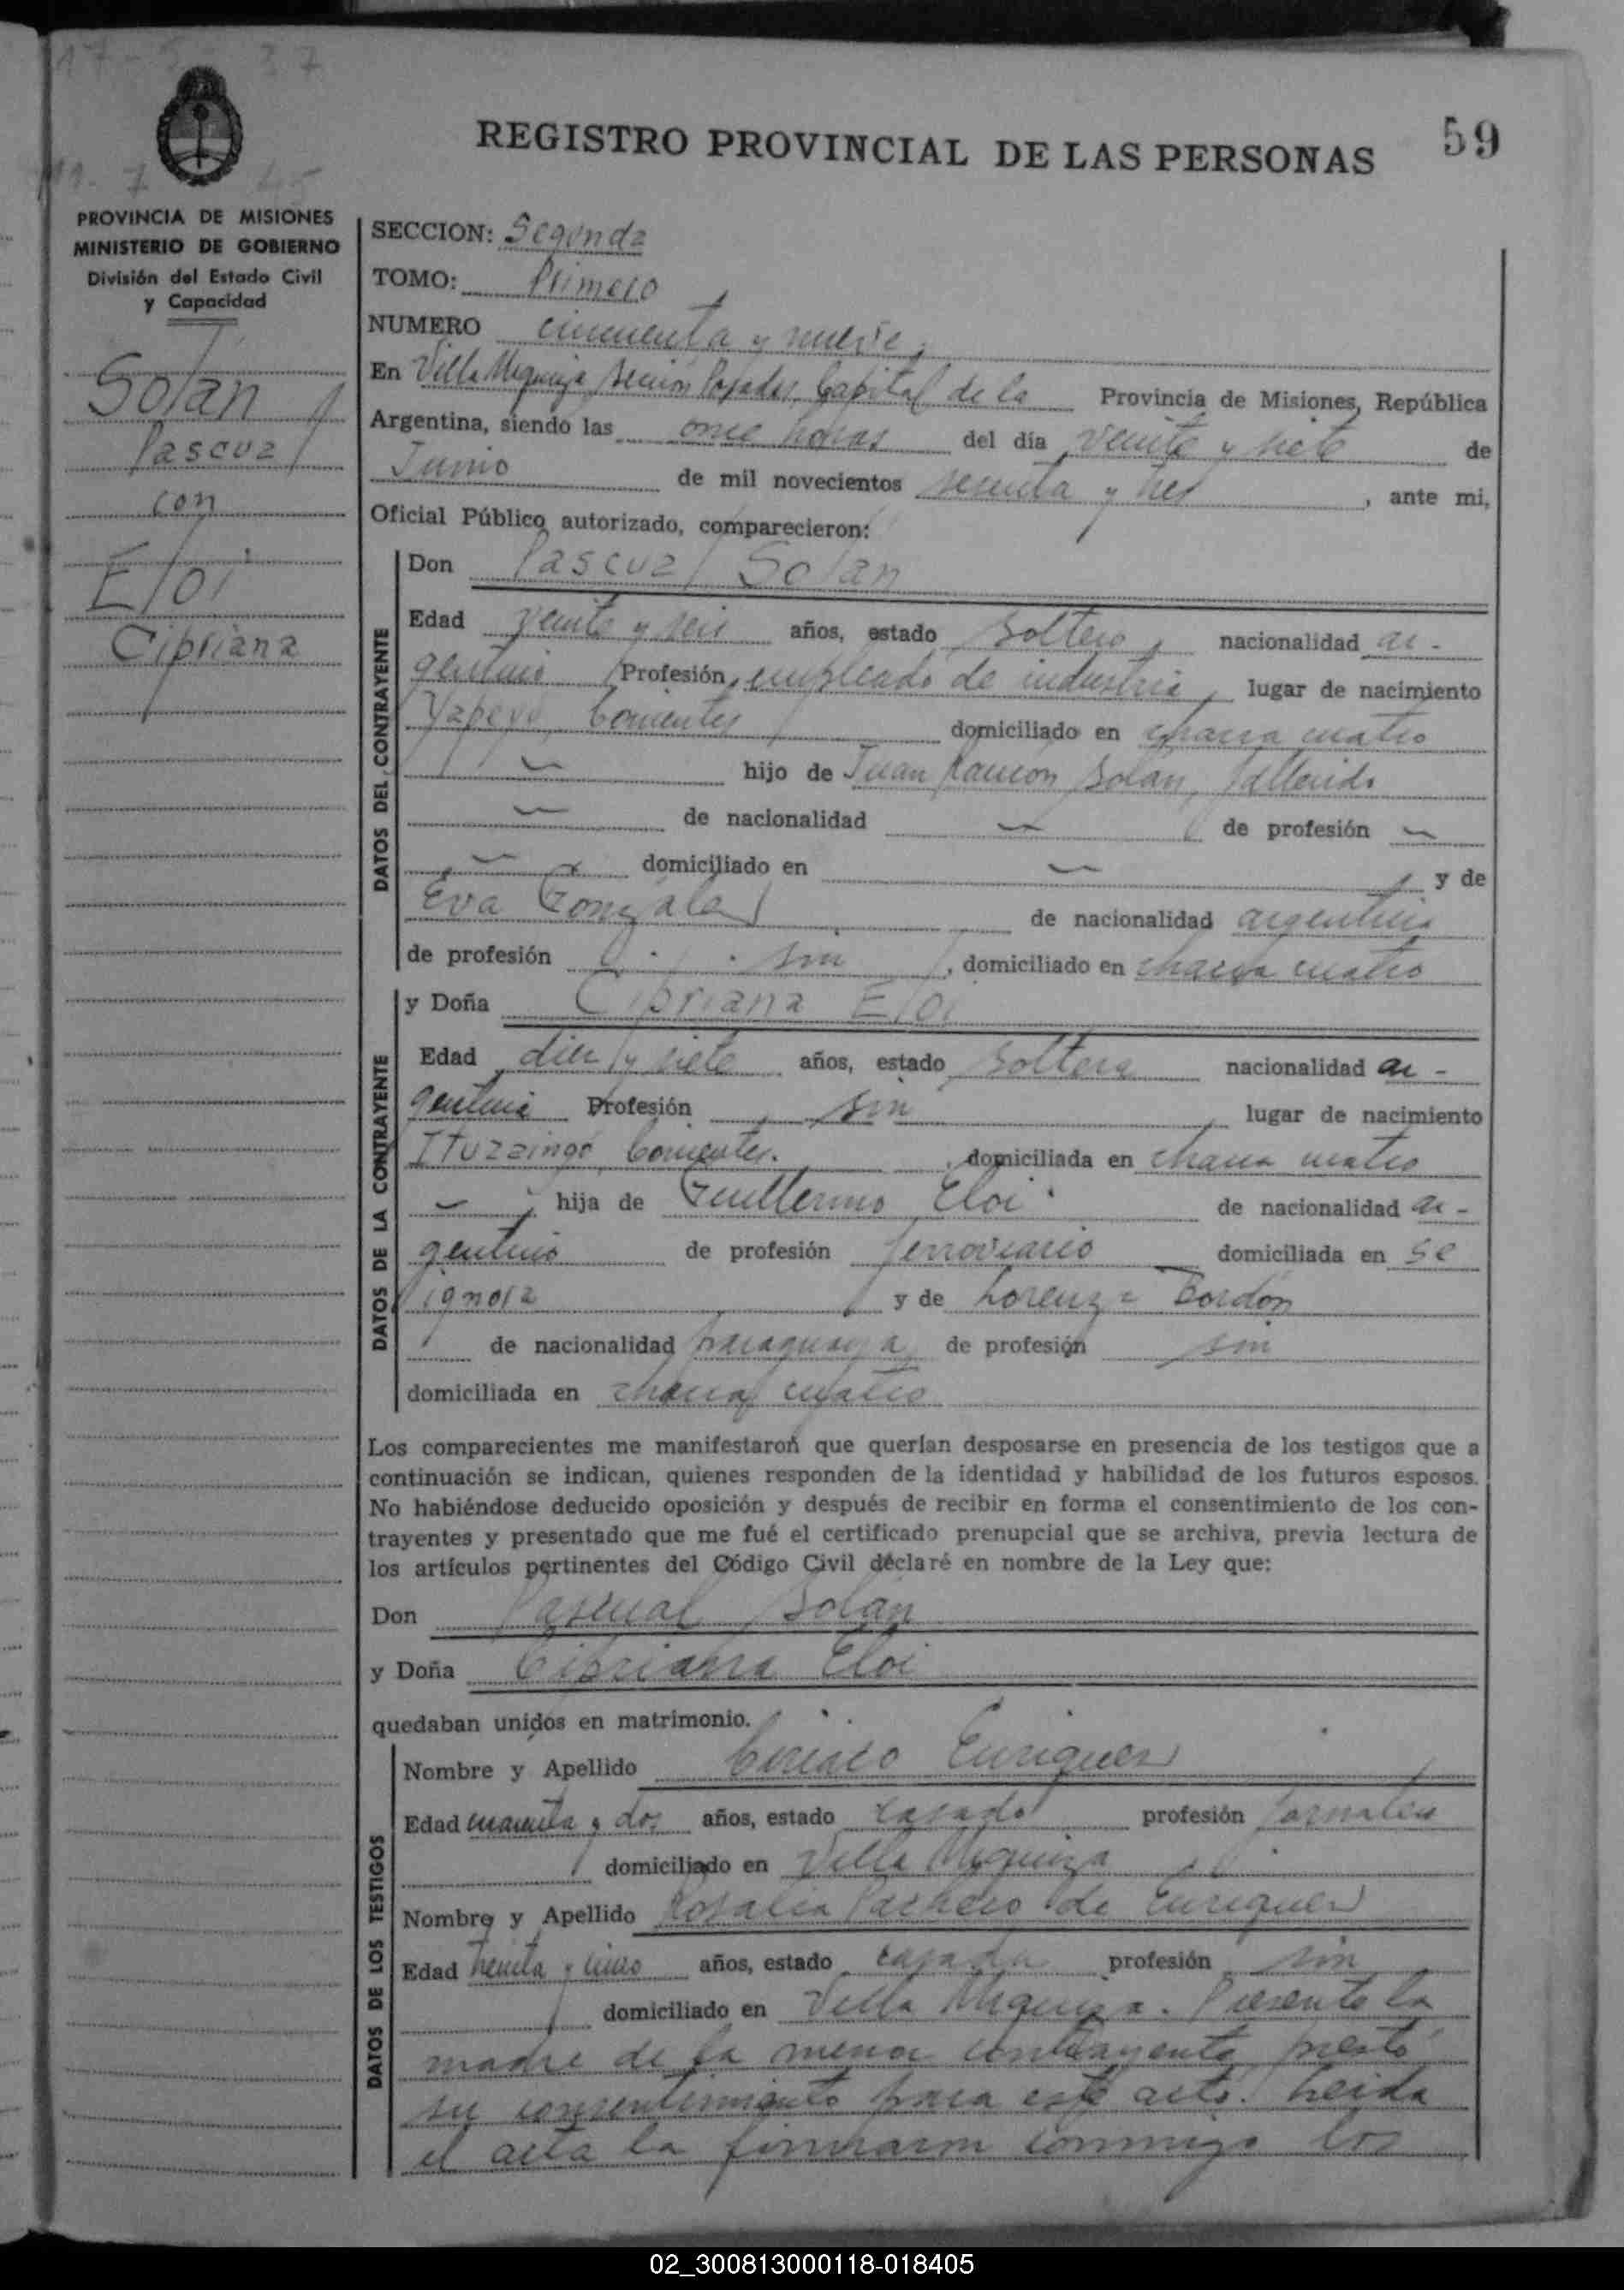 17-5-37
59
REGISTRO PROVINCIAL DE LAS PERSONAS
11-7-45
PROVINCIA DE MISIONES
MINISTERIO DE GOBIERNO
División del Estado Civil
y Capacidad
Solan
Pascual
con
Eloi
Cipriana
SECCION: Segunda
TOMO: Primero
NUMERO cincuenta y nueve,
En Villa Urquiza Sección Posadas, Capital de la Provincia de Misiones, República
Argentina, siendo las once horas del día veinte y siete de
Junio de mil novecientos sesenta y tres, ante mi,
Oficial Público autorizado, comparecieron:
DATOS DEL CONTRAYENTE
Don Pascual Solan
Edad veinte y seis años, estado soltero, nacionalidad ar-
gentino Profesión, empleado de industria, lugar de nacimiento
Yapeyú, Corrientes domiciliado en chacra cuatro
hijo de Juan Ramón Solan, fallecido
de nacionalidad de profesión
domiciliado en y de
Eva González de nacionalidad argentina
de profesión sin, domiciliado en chacra cuatro
DATOS DE LA CONTRAYENTE
y Doña Cipriana Eloi
Edad diez y siete años, estado soltera nacionalidad ar-
gentina Profesión sin lugar de nacimiento
Ituzaingó, Corrientes. domiciliada en chacra cuatro
hija de Guillermo Eloi de nacionalidad ar-
gentino de profesión ferroviario domiciliada en se
ignora y de Lorenza Bordón
de nacionalidad paraguaya de profesión sin
domiciliada en chacra cuatro
Los comparecientes me manifestaron que querían desposarse en presencia de los testigos que a
continuación se indican, quienes responden de la identidad y habilidad de los futuros esposos.
No habiéndose deducido oposición y después de recibir en forma el consentimiento de los con-
trayentes y presentado que me fué el certificado prenupcial que se archiva, previa lectura de
los artículos pertinentes del Código Civil declaré en nombre de la Ley que:
Don Pascual Solan
y Doña Cipriana Eloi
quedaban unidos en matrimonio.
DATOS DE LOS TESTIGOS
Nombre y Apellido Ciriaco Enriquez
Edad cuarenta y dos años, estado casado profesión jornalero
domiciliado en Villa Urquiza
Nombre y Apellido Rosalia Pacheco de Enriquez
Edad treinta y cinco años, estado casada profesión sin
domiciliado en Villa Urquiza. Presente la
madre de la menor contrayente prestó
su consentimiento para este acto. Leida
el acta la firmaron conmigo los
02_300813000118-018405